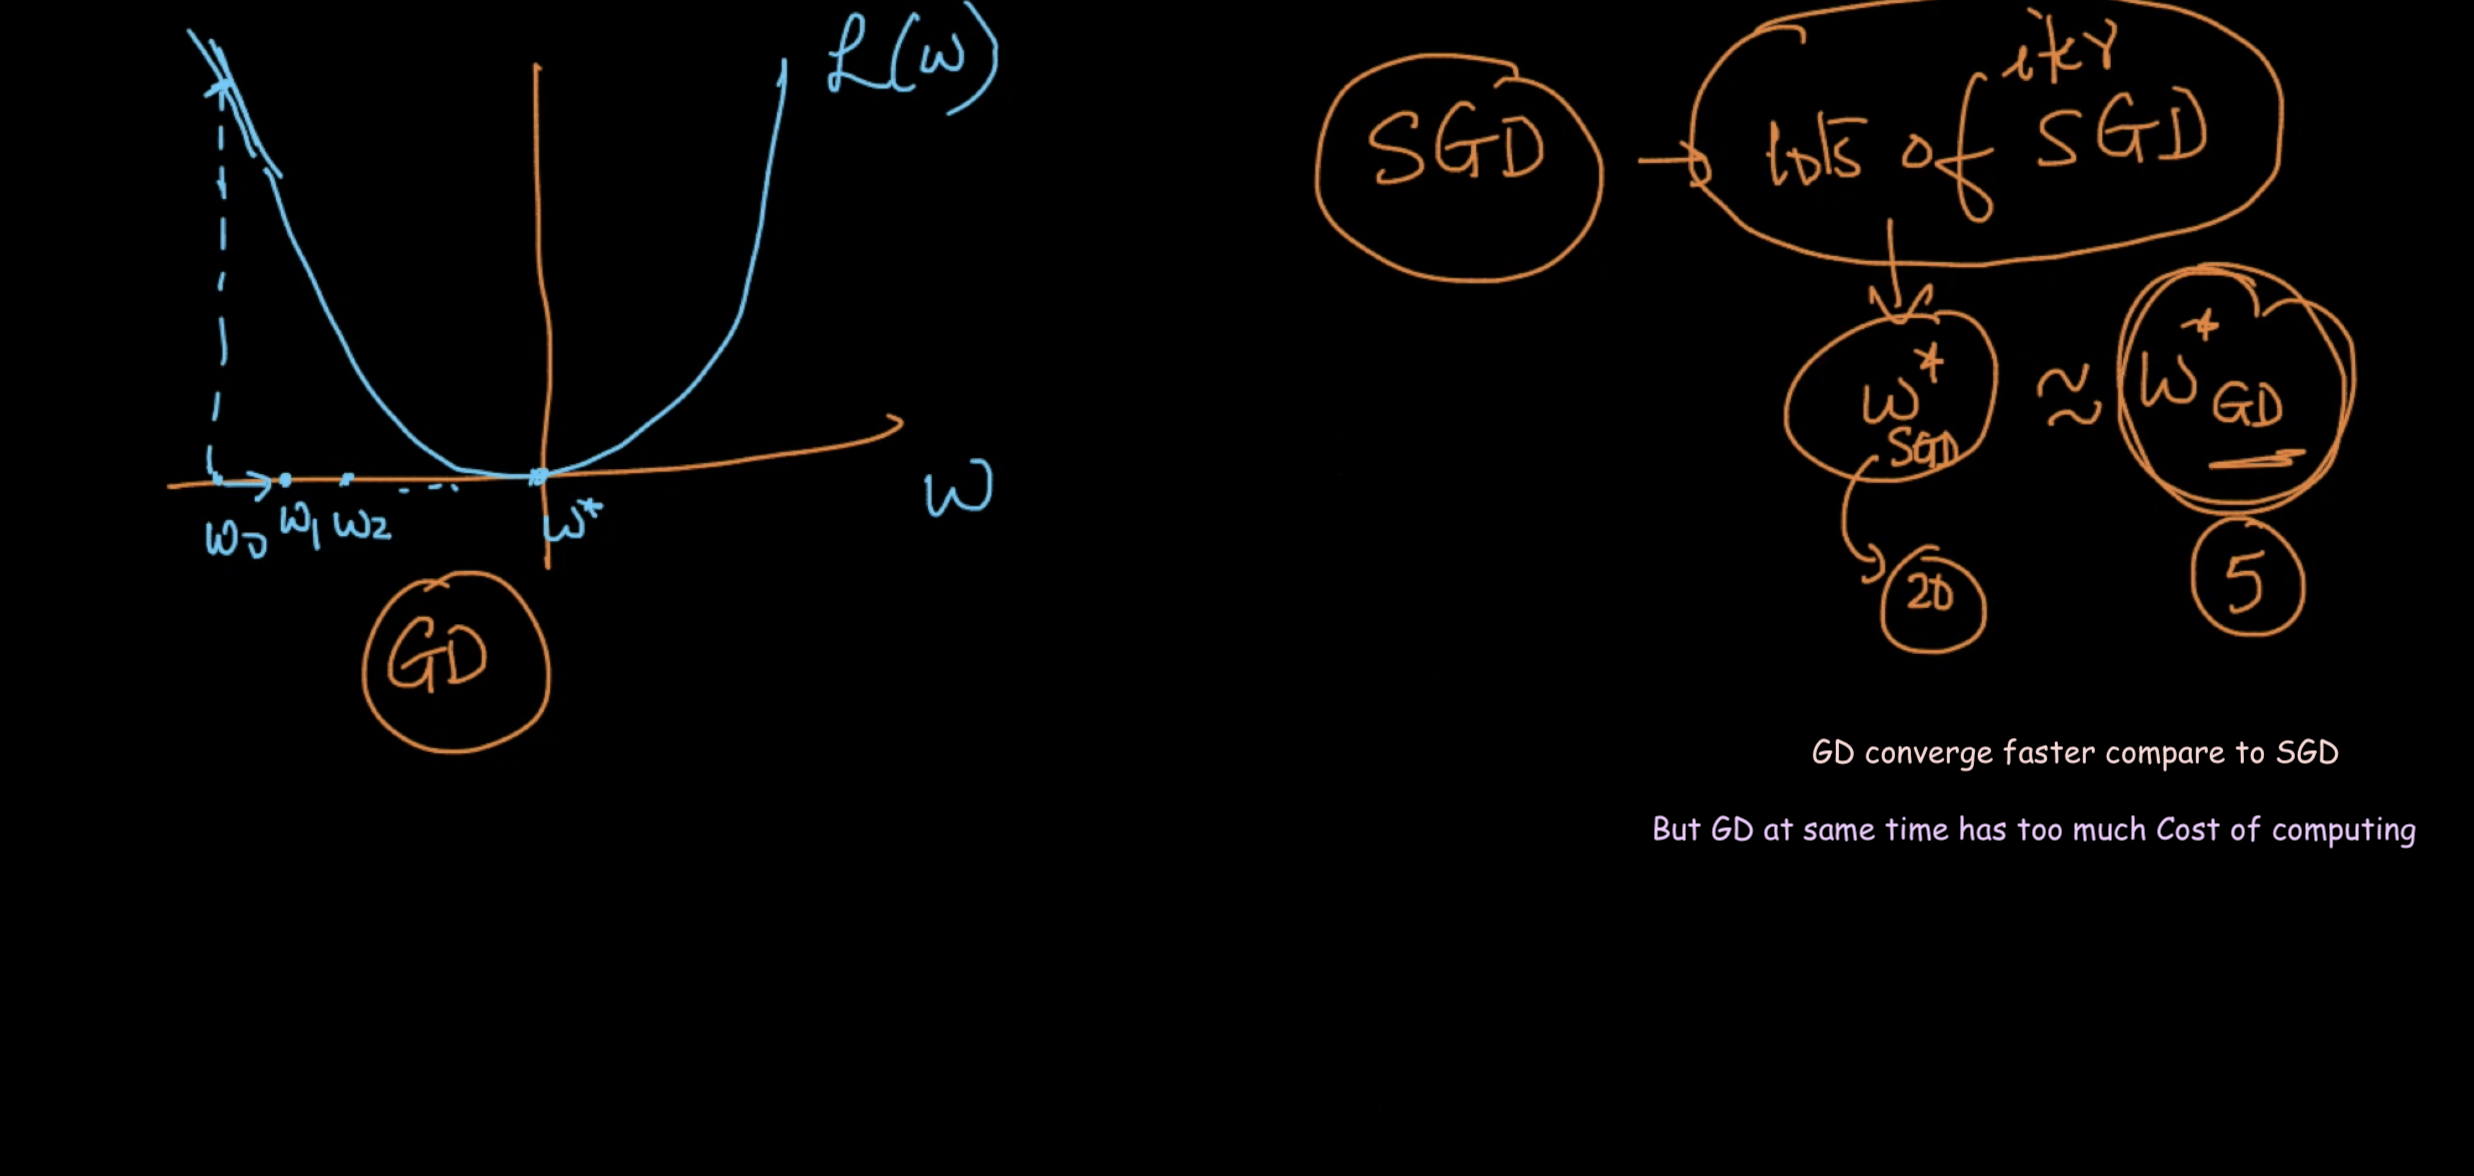 L(w)
w
w0 w1 w2
w*
GD
SGD → lots of SGD
w* SGD ≈ w* GD
20
5
GD converge faster compare to SGD
But GD at same time has too much Cost of computing